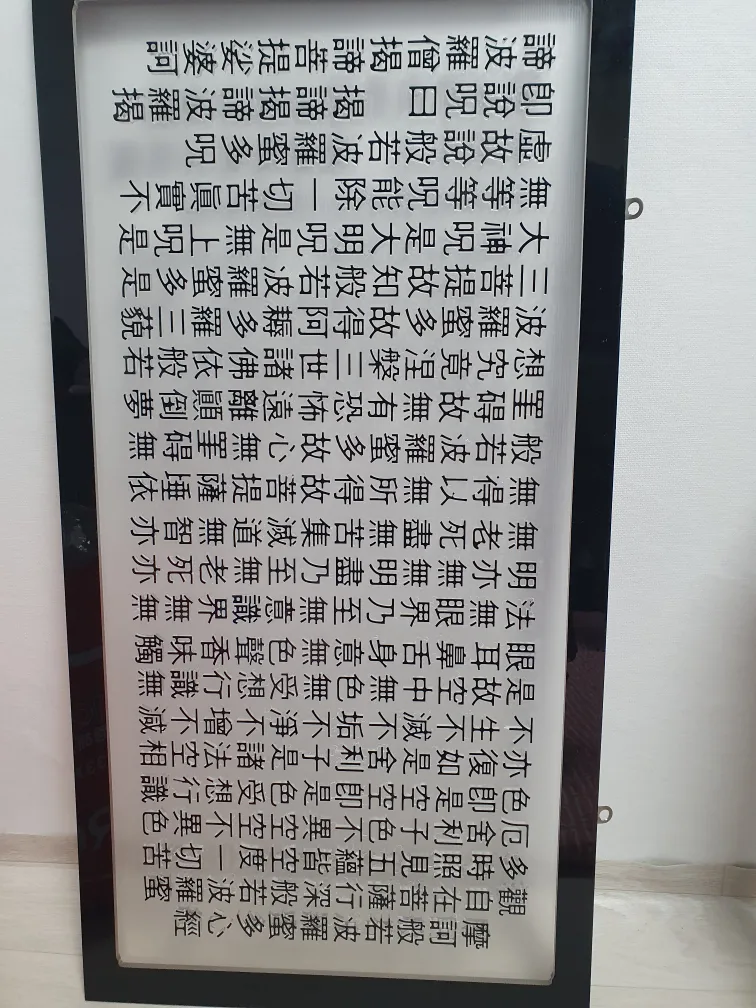 摩訶般若波羅蜜多心經
觀自在菩薩行深般若波羅蜜
多時照見五蘊皆空度一切苦
厄舍利子色不異空空不異色
色卽是空空卽是色受想行識
亦復如是舍利子是諸法空相
不生不滅不垢不淨不增不減
是故空中無色無受想行識無
眼耳鼻舌身意無色聲香味觸
法無眼界乃至無意識界無無
明亦無無明盡乃至無老死亦
無老死盡無苦集滅道無智亦
無得以無所得故菩提薩埵依
般若波羅蜜多故心無罣碍無
罣碍故無有恐怖遠離顚倒夢
想究竟涅槃三世諸佛依般若
波羅蜜多故得阿耨多羅三藐
三菩提故知般若波羅蜜多是
大神呪是大明呪是無上呪是
無等等呪能除一切苦眞實不
虛故說般若波羅蜜多呪
卽說呪曰 揭諦揭諦波羅揭
諦波羅僧揭諦菩提娑婆訶